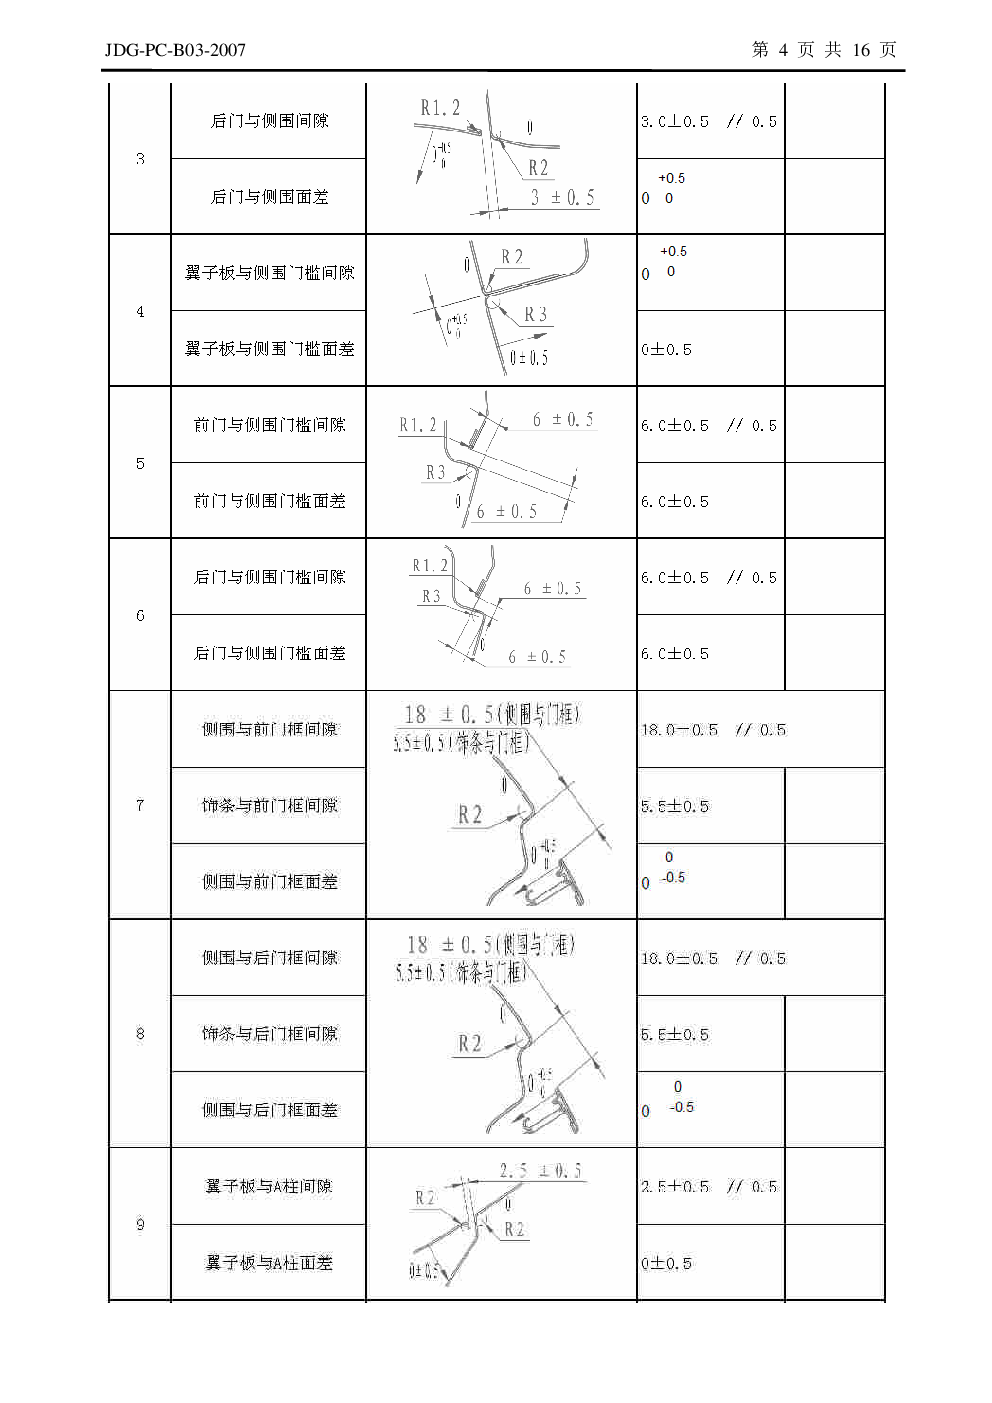 JDG-PC-B03-2007
第 4 页 共 16 页
3
后门与侧围间隙
R1.2
0
+0.5
0
R2
3 ±0.5
3.0±0.5 // 0.5
后门与侧围面差
+0.5
0 0
4
翼子板与侧围门槛间隙
R2
0
R3
+0.5
0
0±0.5
+0.5
0 0
翼子板与侧围门槛面差
0±0.5
5
前门与侧围门槛间隙
6 ±0.5
R1.2
R3
0
6 ±0.5
6.0±0.5 // 0.5
前门与侧围门槛面差
6.0±0.5
6
后门与侧围门槛间隙
R1.2
6 ±0.5
R3
0
6 ±0.5
6.0±0.5 // 0.5
后门与侧围门槛面差
6.0±0.5
7
侧围与前门框间隙
18 ±0.5(侧围与门框)
5.5±0.5(饰条与门框)
0
R2
0 +0.5
0
18.0±0.5 // 0.5
饰条与前门框间隙
5.5±0.5
侧围与前门框面差
0
0 -0.5
8
侧围与后门框间隙
18 ±0.5(侧围与门框)
5.5±0.5(饰条与门框)
0
R2
0 +0.5
0
18.0±0.5 // 0.5
饰条与后门框间隙
5.5±0.5
侧围与后门框面差
0
0 -0.5
9
翼子板与A柱间隙
2.5 ±0.5
R2
0
R2
0±0.5
2.5±0.5 // 0.5
翼子板与A柱面差
0±0.5